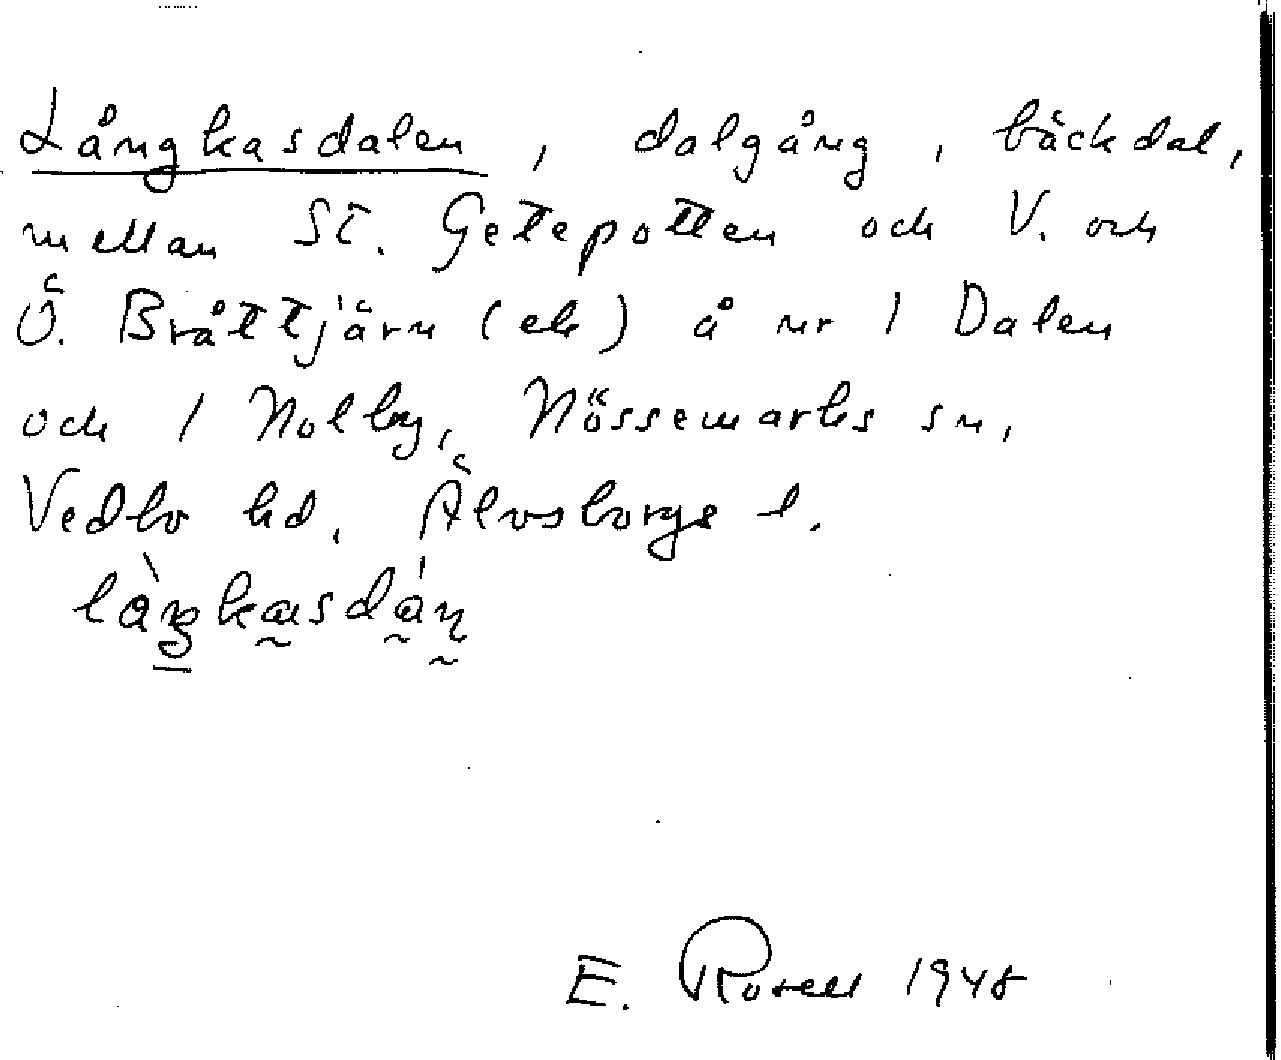 Långkasdalen, dalgång, bäckdal,
mellan St. Getepotten och V. och
Ö. Bråttjärn (ek) å nr 1 Dalen
och 1 Nolby, Nössemarks sn,
Vedbo hd, Älvsborgs l.
E. Rosell 1948